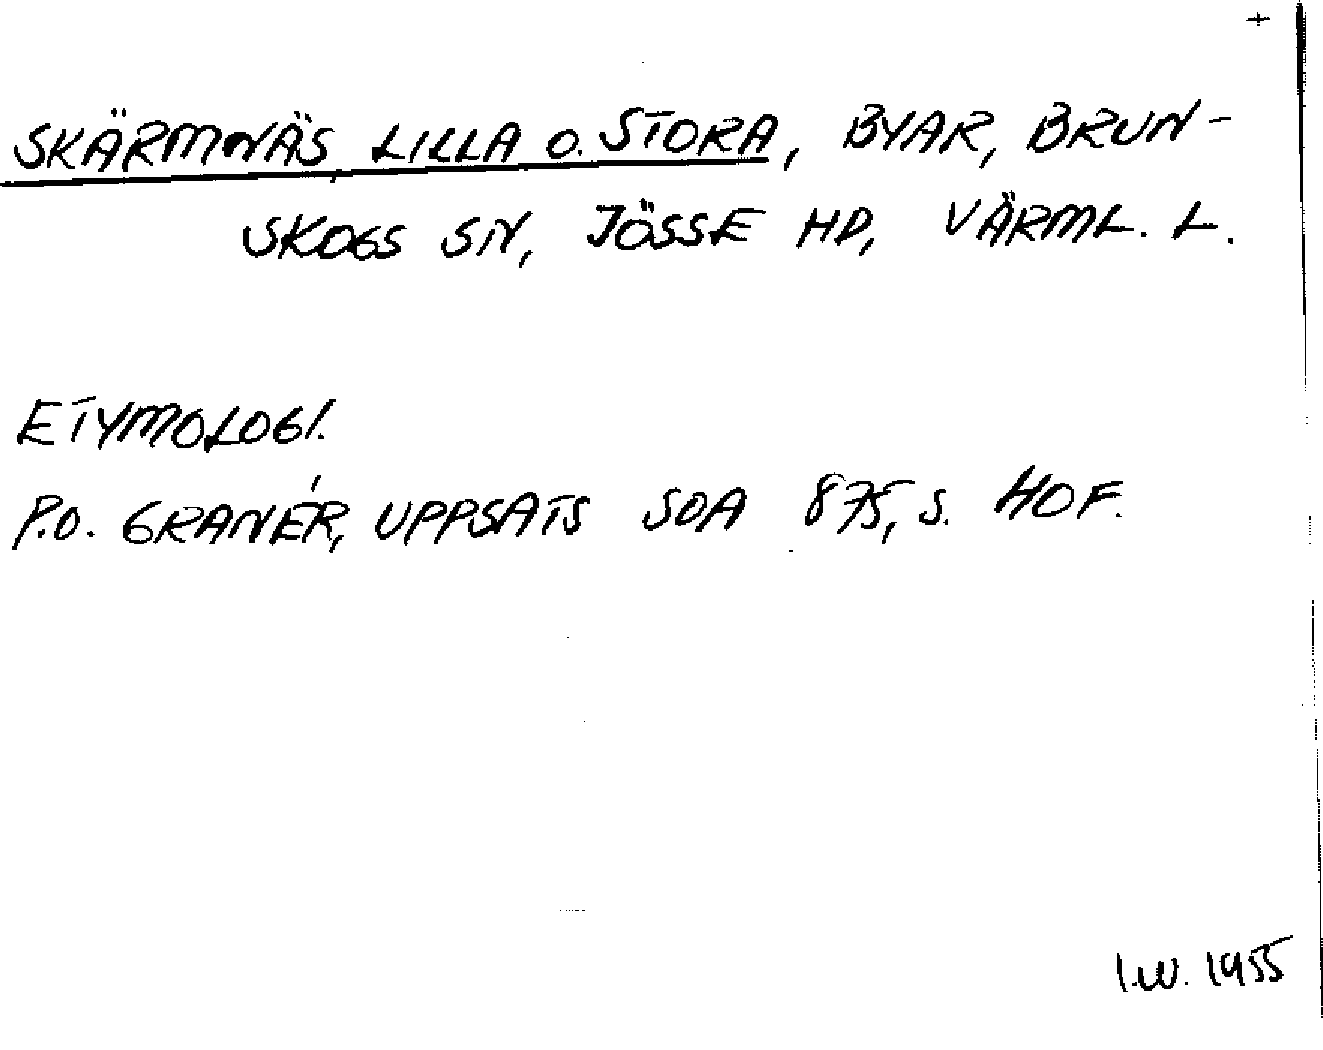 +
SKÄRMNÄS, LILLA O. STORA, BYAR, BRUN-
SKOGS SN, JÖSSE HD, VÄRML. L.
ETYMOLOGI.
P.O. GRANÉR, UPPSATS SOA 875, S. HOF.
I.W. 1955